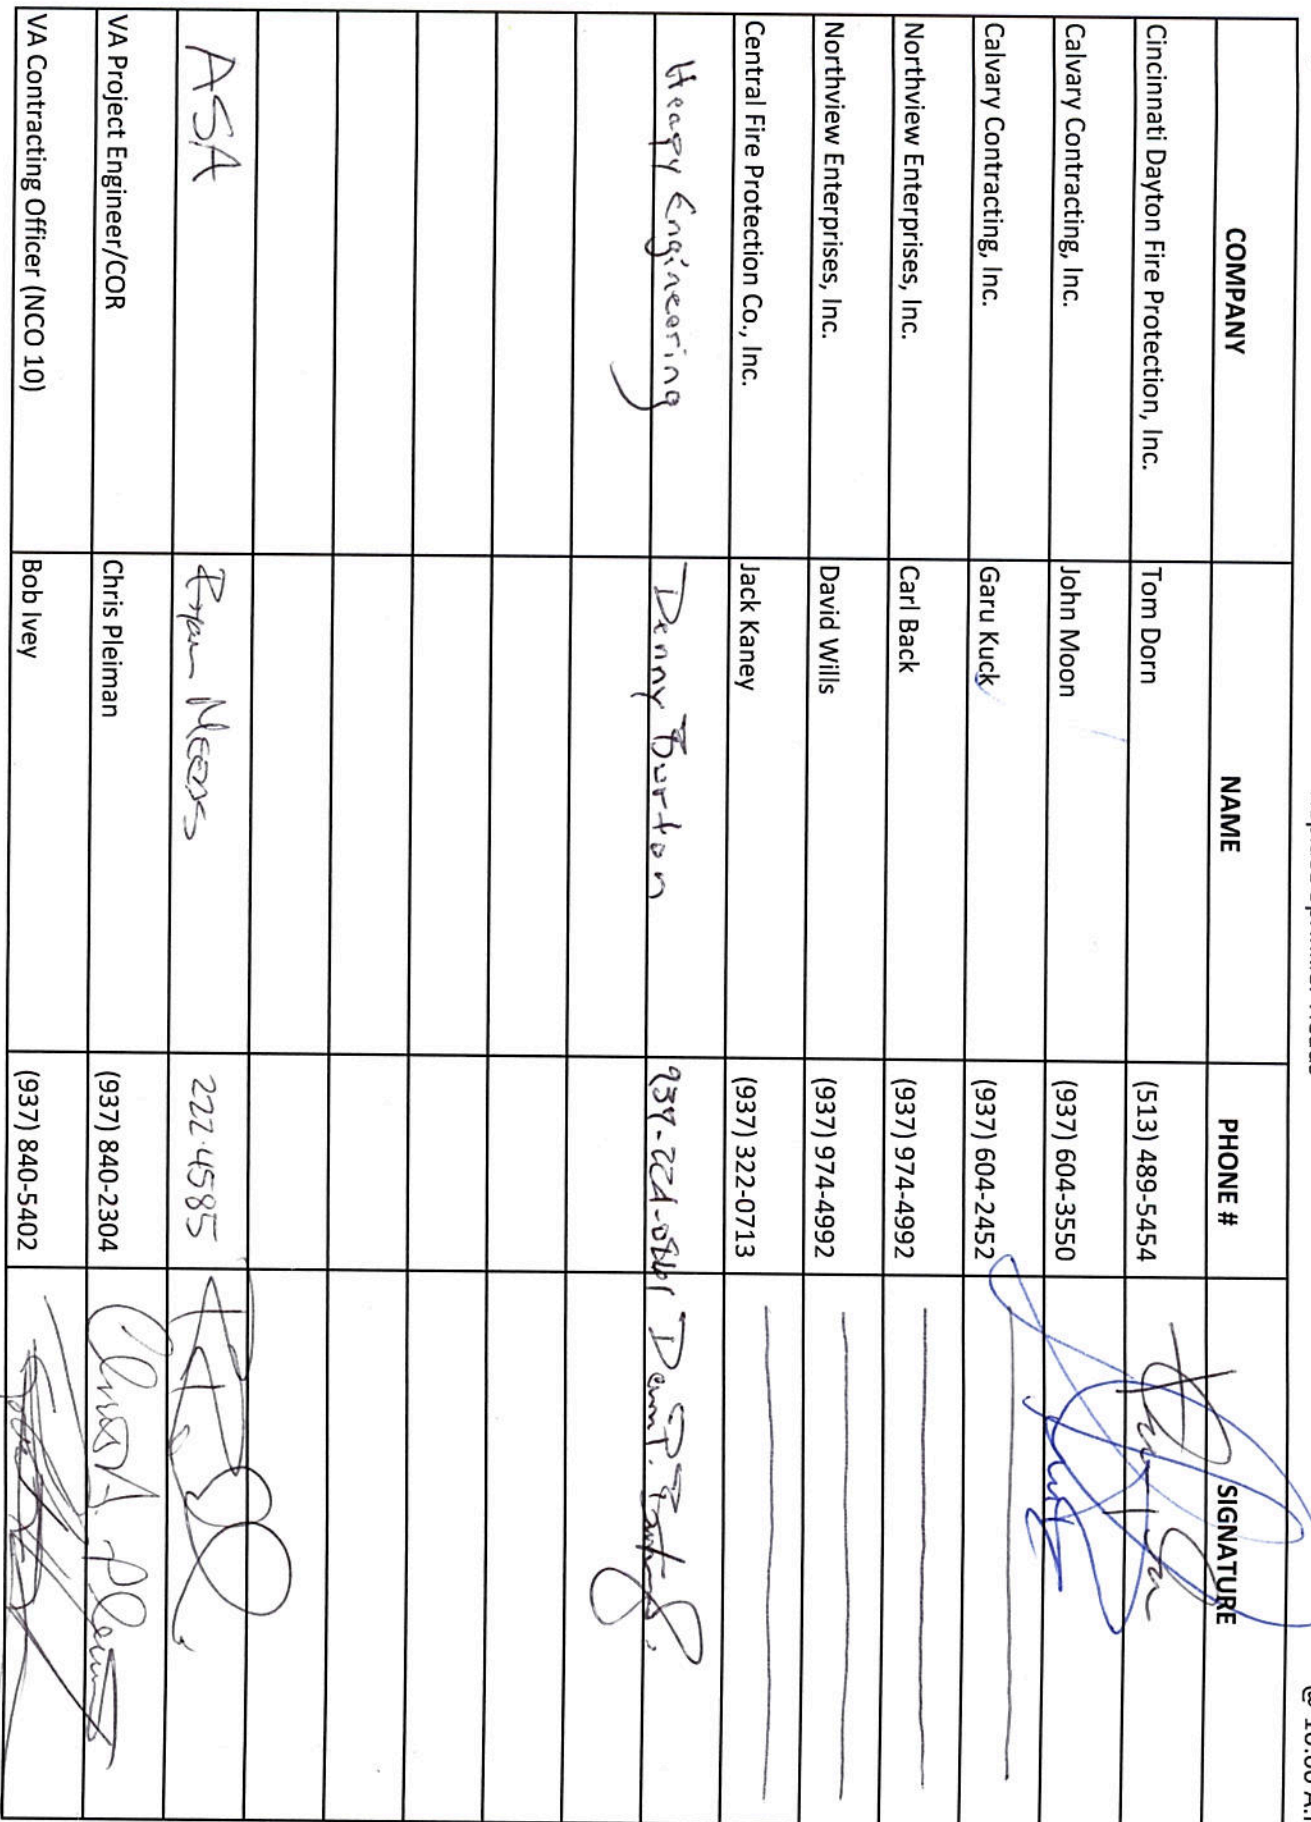 @ 10:00 A.
COMPANY NAME PHONE # SIGNATURE
Cincinnati Dayton Fire Protection, Inc. Tom Dorn (513) 489-5454
Calvary Contracting, Inc. John Moon (937) 604-3550
Calvary Contracting, Inc. Garu Kuck (937) 604-2452
Northview Enterprises, Inc. Carl Back (937) 974-4992
Northview Enterprises, Inc. David Wills (937) 974-4992
Central Fire Protection Co., Inc. Jack Kaney (937) 322-0713
Heapy Engineering Denny Burton
ASA Ryan Meers 222-4585
VA Project Engineer/COR Chris Pleiman (937) 840-2304
VA Contracting Officer (NCO 10) Bob Ivey (937) 840-5402